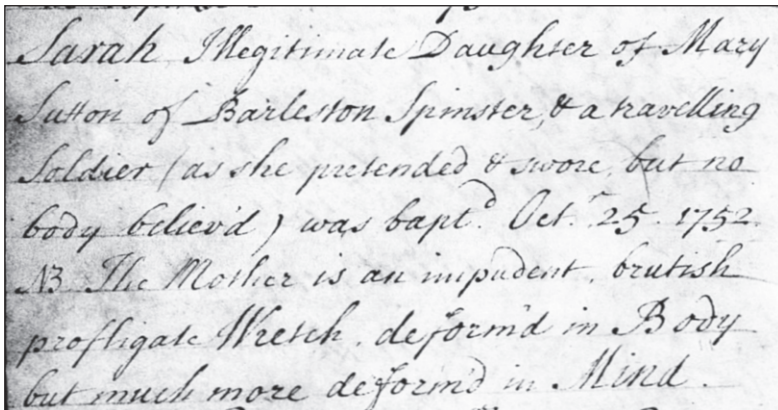 Sarah Illegitimate Daughter of Mary
Sutton of Barleston Spinster, & a travelling
Soldier (as she pretended & swore, but no
body believ'd) was bapt.d Oct.r 25. 1752.
NB The Mother is an impudent, brutish
profligate Wretch, deform'd in Body
but much more deform'd in Mind.